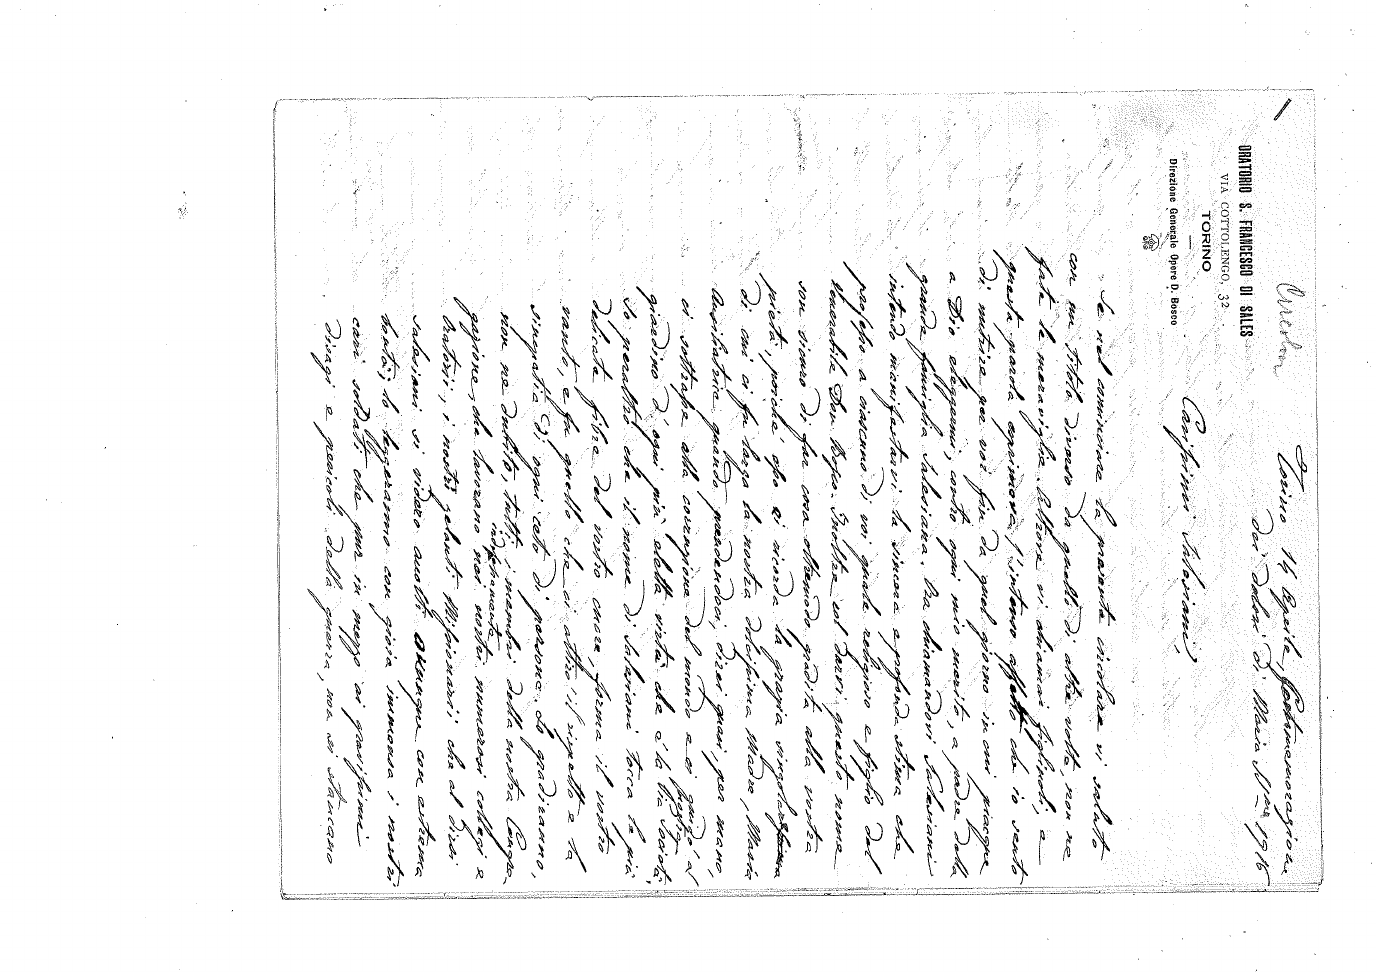 Circolare
ORATORIO S. FRANCESCO DI SALES
VIA COTTOLENGO, 32
TORINO
Direzione Generale Opere D. Bosco
Torino 14 Aprile, Commemorazione
dei dolori di Maria V. 1916
Carissimi Salesiani,
Se nel cominciare la presente circolare vi saluto
con un titolo diverso da quello di altre volte, non ne
fate le meraviglie. Altrove vi chiamai figliuoli, e
questa parola esprimeva l'intenso affetto che io sento
di nutrire per voi fin da quel giorno in cui piacque
a Dio eleggermi, contro ogni mio merito, a padre della
grande famiglia Salesiana. Ora chiamandovi Salesiani
intendo manifestarvi la sincera e profonda stima che
professo a ciascuno di voi quale religioso e figlio del
Venerabile Don Bosco. Inoltre col darvi questo nome
son sicuro di far cosa oltremodo gradita alla vostra
pietà, poichè esso ci ricorda la grazia singolarissima
di cui ci fu larga la nostra dolcissima Madre, Maria
Ausiliatrice quando, prendendoci, direi quasi, per mano,
ci sottrasse alla corruzione del mondo e ci guidò al
giardino d'ogni più eletta virtù che è la Pia nostra Società.
So peraltro che il nome di Salesiani tocca le più
delicate fibre del vostro cuore, forma il vostro
vanto, e fu quello che ci attirò il rispetto e la
simpatia di ogni ceto di persone. Lo gradiranno,
non ne dubito, tutti indistintamente i membri della nostra Congre-
gazione, che lavorano nei nostri numerosi collegi e
Oratorii, i nostri zelanti Missionarii che al dirsi
Salesiani si videro accolti ovunque con estrema
bontà; lo leggeranno con gioia immensa i nostri
cari soldati che pur in mezzo ai gravissimi
disagi e pericoli della guerra, non si stancano